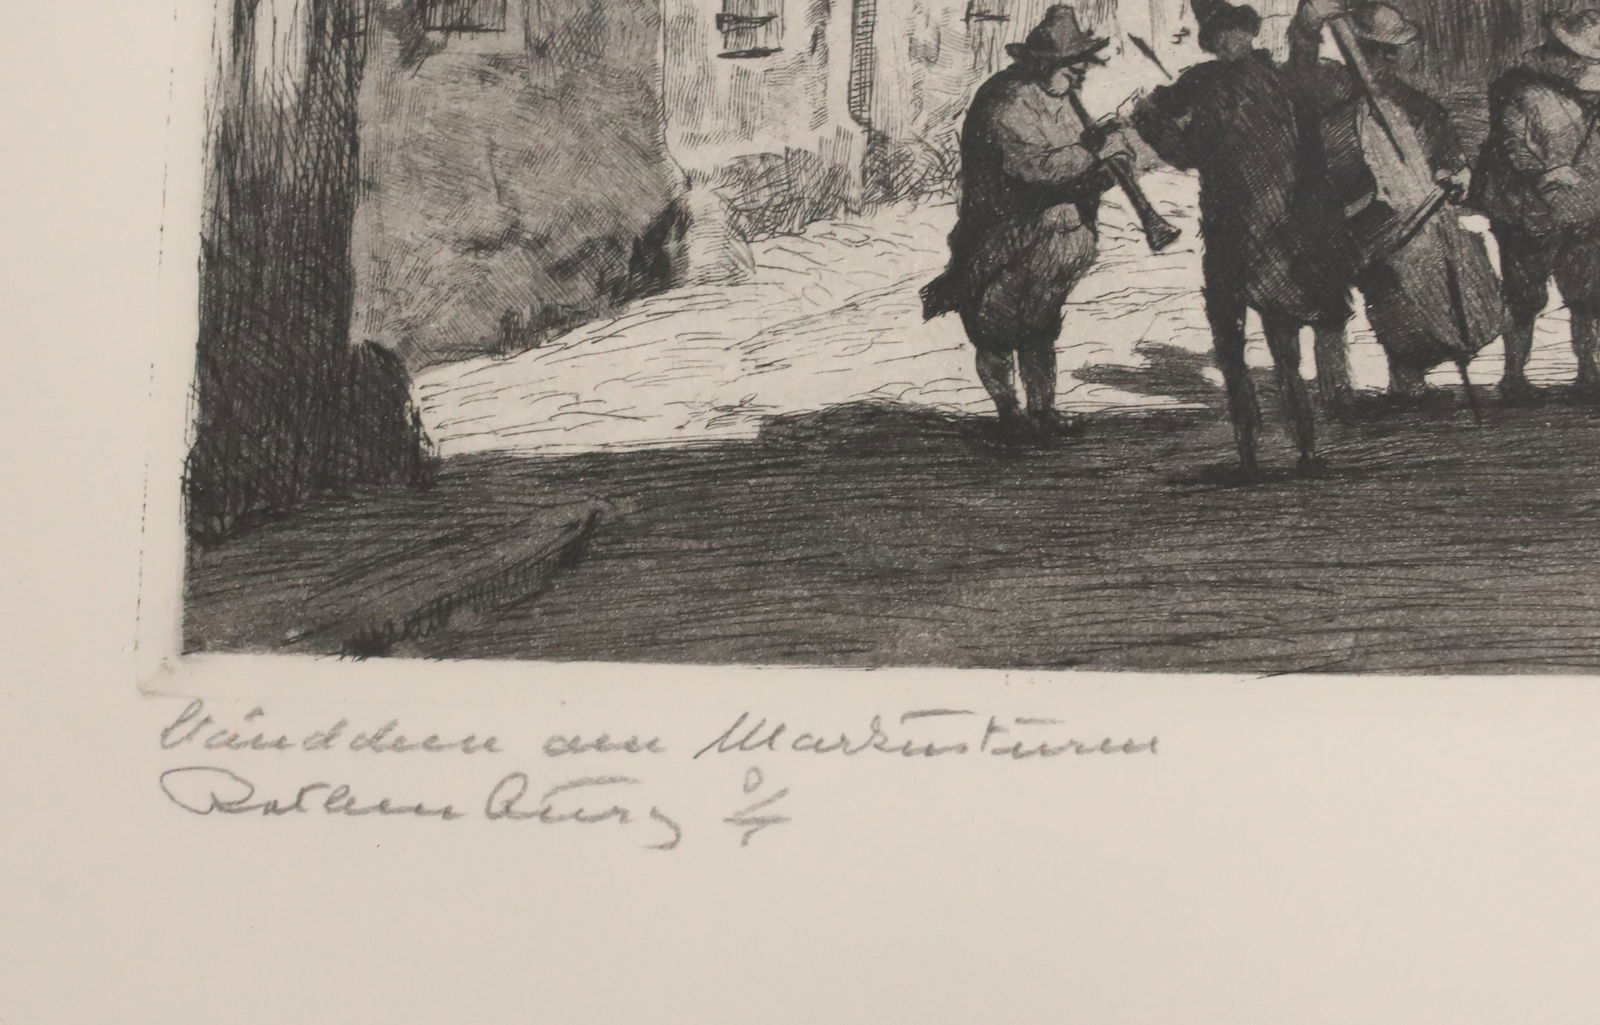 Ständchen am Markusturm
Rothenburg o/T